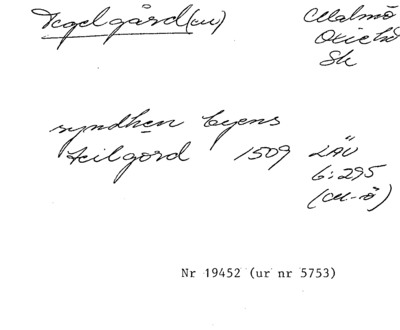 Tegelgård (en) Malmö
Oxie hd
Sk
syndhen byens
teilgord 1509 LÄU
6:295
(M-ö)
Nr 19452 (ur nr 5753)